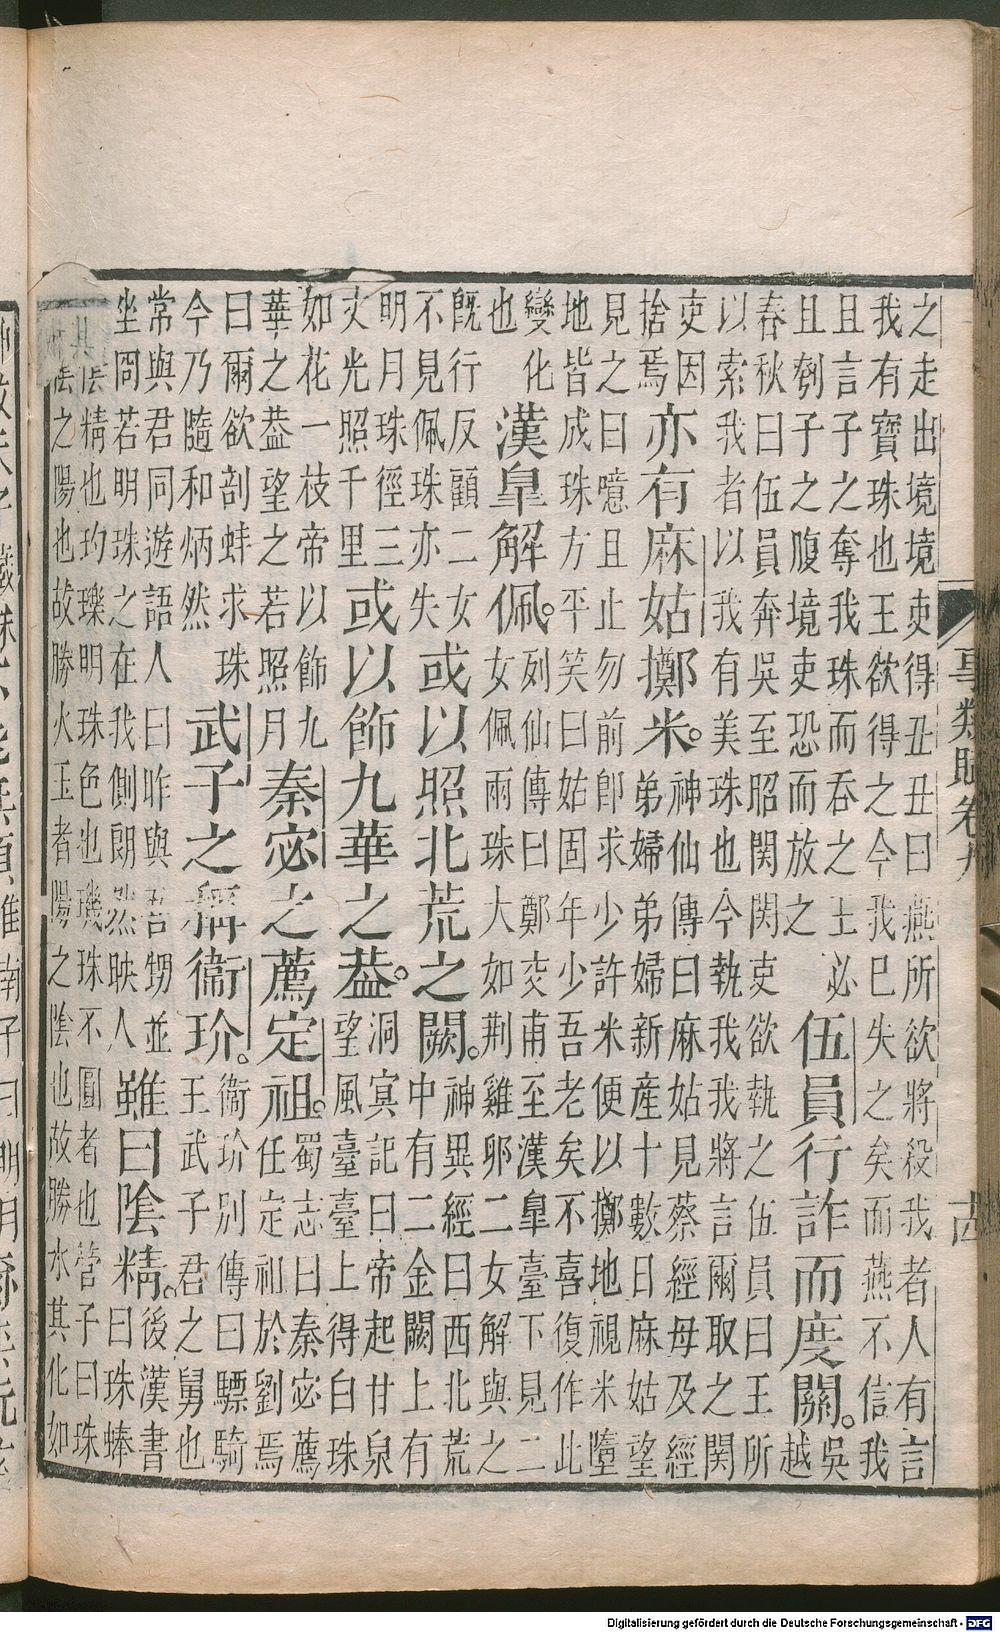 之走出境境吏得丑丑曰燕所欲將殺我者人有言
我有寶珠也王欲得之今我已失之矣而燕不信我
且言子之奪我珠而吞之王必
且刳子之腹境吏恐而放之
伍員行詐而度關。
吳
越
春秋曰伍員奔吳至昭関関吏欲執之伍員曰王所
以索我者以我有美珠也今執我我將言爾取之関
吏因
捨焉
亦有麻姑擲米。
神仙傳曰麻姑見蔡經母及經
弟婦弟婦新産十數日麻姑望
見之曰噫且止勿前卽求少許米便以擲地視米墮
地皆成珠方平笑曰姑固年少吾老矣不喜復作此
變化
也
漢皐解佩。
列仙傳曰鄭交甫至漢皐臺下見二
女佩兩珠大如荆雞卵二女解與之
旣行反顧二女
不見佩珠亦失
或以照北荒之闕。
神異經曰西北荒
中有二金闕上有
明月珠徑三
丈光照千里
或以飾九華之葢。
洞㝠記曰帝起甘泉
望風臺臺上得白珠
如花一枝帝以飾九
華之葢望之若照月
秦宓之薦定祖。
蜀志曰秦宓薦
任定祖於劉焉
曰爾欲剖蚌求珠
今乃隨和炳然
武子之稱衞玠。
衞玠別傳曰驃騎
王武子君之舅也
常與君同遊語人曰昨與吾甥並
坐冏若明珠之在我側朗然映人
雖曰陰精。
後漢書
曰珠蜯
其陰精也玓瓅明珠色也璣珠不圓者也管子曰珠
陰之陽也故勝火玉者陽之陰也故勝水其化如
事類賦卷九
Digitalisierung gefördert durch die Deutsche Forschungsgemeinschaft - DFG